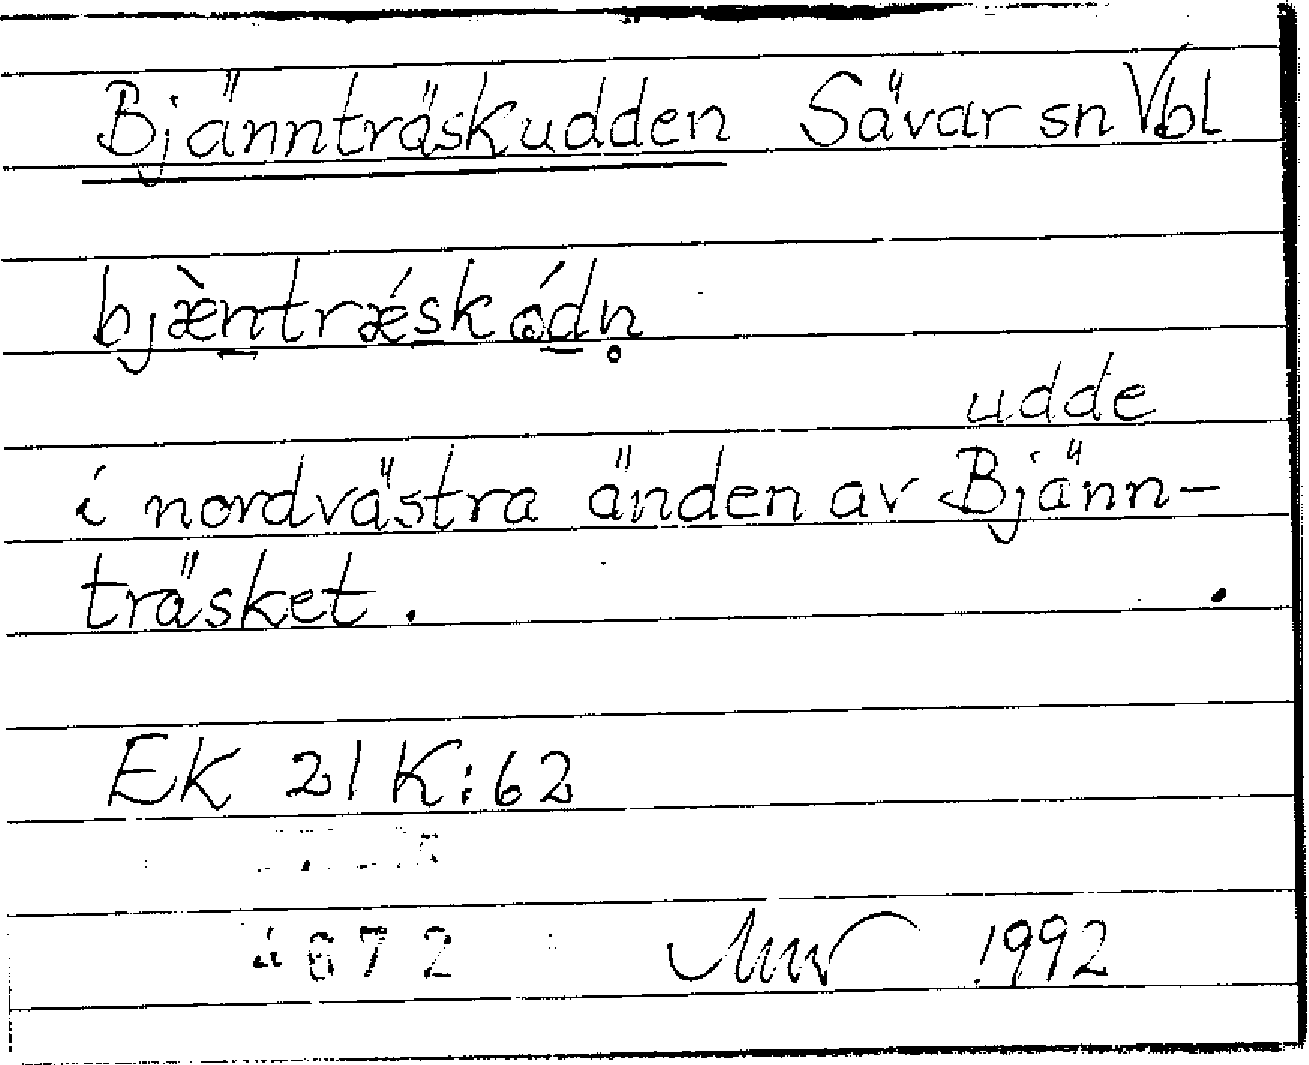 Bjännträskudden Sävar sn Vbl
bjæ̀n̲trǽs̲kǫ́d̲n̥
udde
i nordvästra änden av Bjänn-
träsket.
EK 21 K:62
672 1992